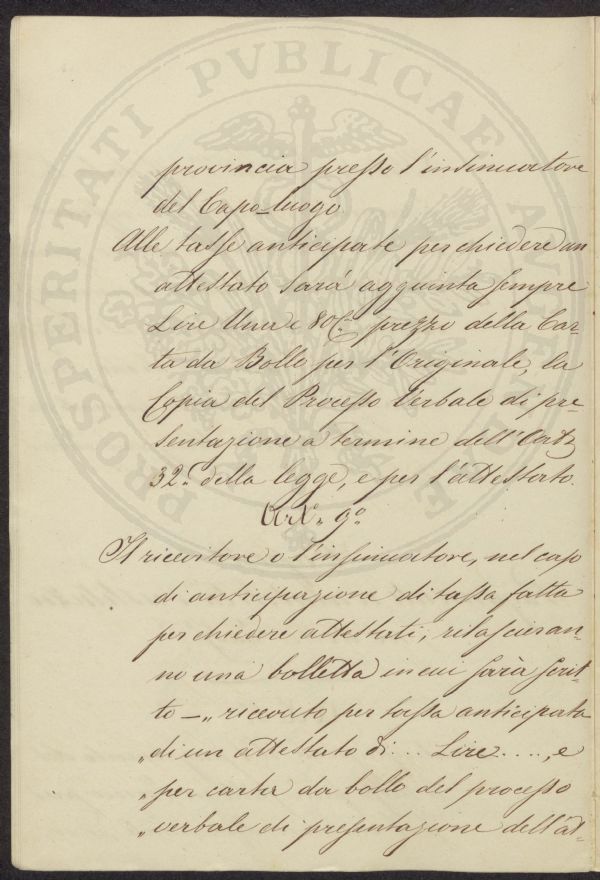 PROSPERITATI PVBLICAE AVGENDAE
provincia presso l'insinuatore
del Capo-luogo
Alle tasse anticipate per chiedere un
attestato sarà aggiunta sempre
Lire Una e 80 C. prezzo della Car-
ta da Bollo per l'Originale, la
Copia del Processo Verbale di pre-
sentazione a termine dell'Art.
32.° della legge, e per l'attestato.
Art.° 9.°
Il ricevitore o l'insinuatore, nel caso
di anticipazione di tassa fatta
per chiedere attestati, rilascieran-
no una bolletta in cui sarà scrit-
to - „ ricevuto per tassa anticipata
„ di un attestato di ... Lire ...., e
„ per carta da bollo del processo
„ verbale di presentazione dell'at-